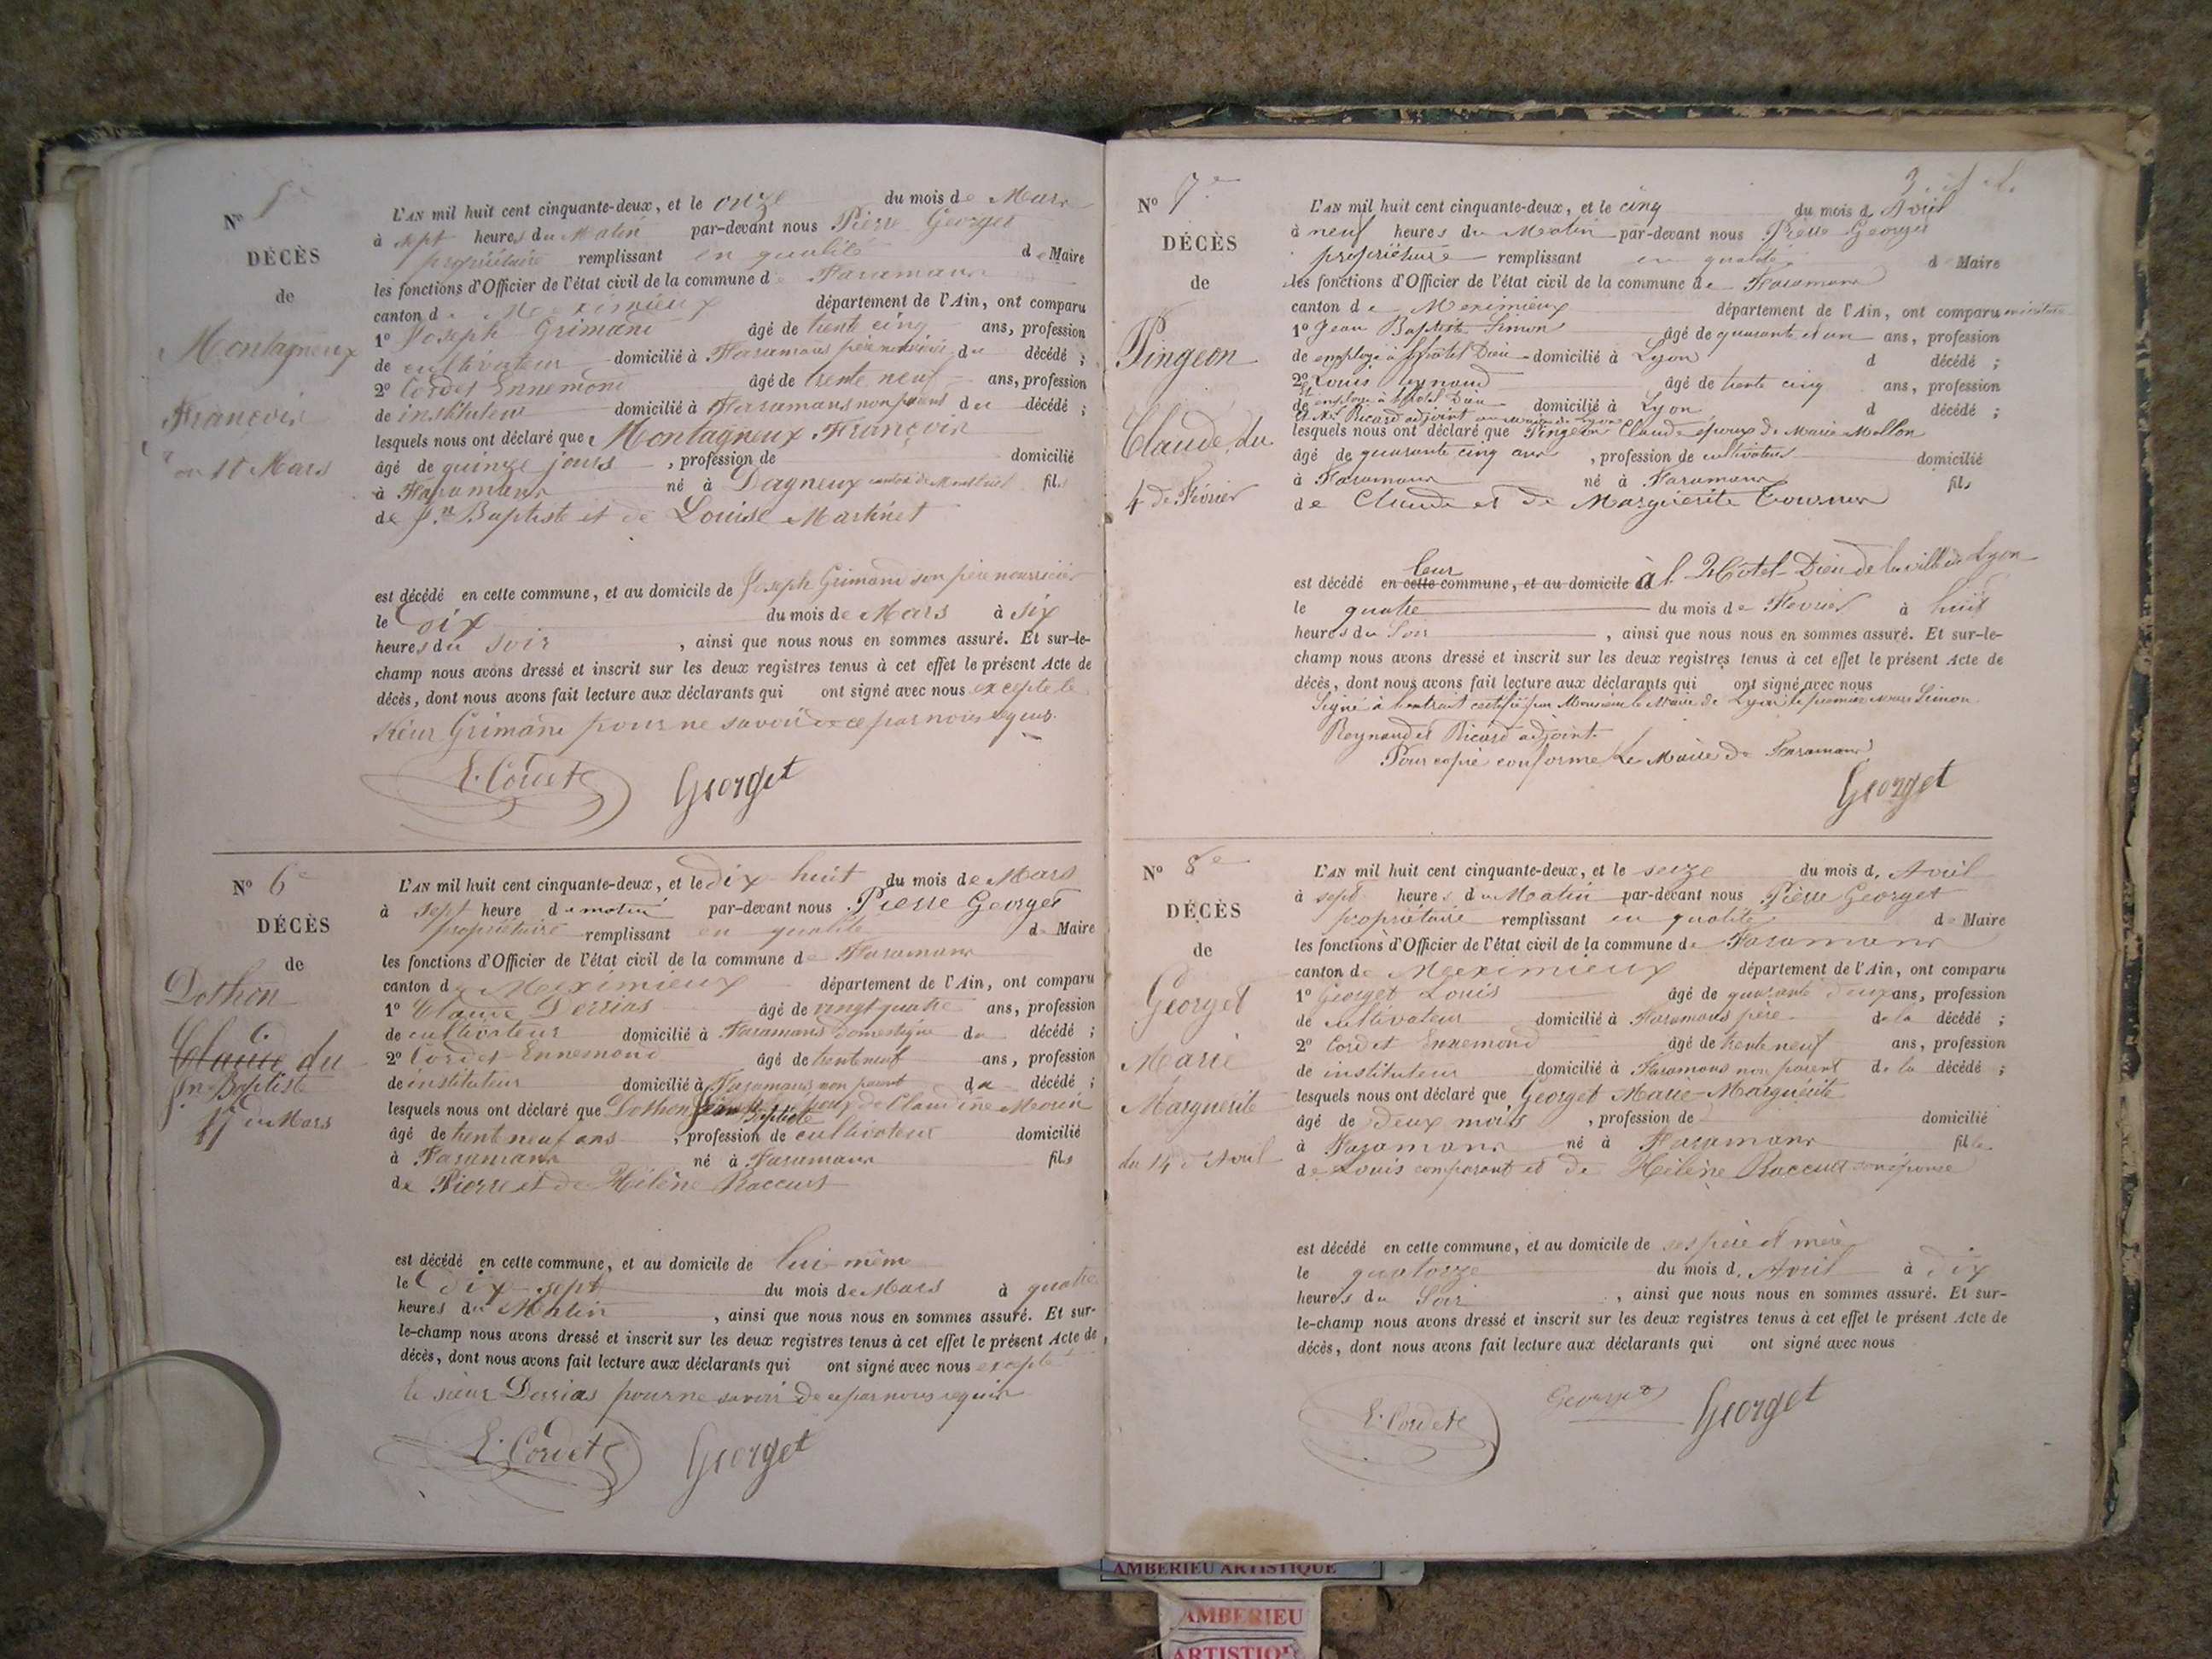 Nº 5e
DÉCÈS
de
Montagneux
François
du 11 Mars
L'AN mil huit cent cinquante-deux, et le onze du mois de Mars
à sept heures du Matin par-devant nous Pierre Georget
propriétaire remplissant en qualité de Maire
les fonctions d'Officier de l'état civil de la commune de Faramans
canton de Meximieux département de l'Ain, ont comparu
1º Joseph Grimand âgé de trente cinq ans, profession
de cultivateur domicilié à Faramans père nourricier du décédé ;
2º Cordet Ennemond âgé de trente neuf ans, profession
de instituteur domicilié à Faramans non parent du décédé ;
lesquels nous ont déclaré que Montagneux François
âgé de quinze jours , profession de domicilié
à Faramans né à Dagneux canton de Montluel fils
de Jn Baptiste et de Louise Martinet
est décédé en cette commune, et au domicile de Joseph Grimand son père nourricier
le dix du mois de Mars à six
heures du soir , ainsi que nous nous en sommes assuré. Et sur-le-
champ nous avons dressé et inscrit sur les deux registres tenus à cet effet le présent Acte de
décès, dont nous avons fait lecture aux déclarants qui ont signé avec nous excepté le
sieur Grimand pour ne savoir de ce par nous requis.
E. Cordet Georget
Nº 6e
DÉCÈS
de
Dothon
Claude du
Jn Baptiste
17 de Mars
L'AN mil huit cent cinquante-deux, et le dix huit du mois de Mars
à sept heure du matin par-devant nous Pierre Georget
propriétaire remplissant en qualité de Maire
les fonctions d'Officier de l'état civil de la commune de Faramans
canton de Meximieux département de l'Ain, ont comparu
1º Claude Derrias âgé de vingt quatre ans, profession
de cultivateur domicilié à Faramans domestique du décédé ;
2º Cordet Ennemond âgé de trente neuf ans, profession
de instituteur domicilié à Faramans non parent du décédé ;
lesquels nous ont déclaré que Dothon Jean Baptiste époux de Claudine Morin
âgé de trente neuf ans , profession de cultivateur domicilié
à Faramans né à Faramans fils
de Pierre et de Hélène Raccurt
est décédé en cette commune, et au domicile de lui-même
le dix sept du mois de Mars à quatre
heures du Matin , ainsi que nous nous en sommes assuré. Et sur-
le-champ nous avons dressé et inscrit sur les deux registres tenus à cet effet le présent Acte de
décès, dont nous avons fait lecture aux déclarants qui ont signé avec nous excepté
le sieur Derrias pour ne savoir de ce par nous requis
E. Cordet Georget
Nº 7e
DÉCÈS
de
Pingeon
Claude du
4 de Février
L'AN mil huit cent cinquante-deux, et le cinq du mois d'Avril
à neuf heures du Matin par-devant nous Pierre Georget
propriétaire remplissant en qualité de Maire
les fonctions d'Officier de l'état civil de la commune de Faramans
canton de Meximieux département de l'Ain, ont comparu
1º Jean Baptiste Simon âgé de quarante et un ans, profession
de employé à l'hôtel Dieu domicilié à Lyon d décédé ;
2º Louis Reynaud âgé de trente cinq ans, profession
de employé à l'hôtel Dieu domicilié à Lyon d décédé ;
et Mr Ricard adjoint
lesquels nous ont déclaré que Pingeon Claude époux de Marie Mollon
âgé de quarante cinq ans , profession de cultivateur domicilié
à Faramans né à Faramans fils
de Claude et de Marguerite Tournier
est décédé en cette leur commune, et au domicile à l'Hôtel-Dieu de la ville de Lyon
le quatre du mois de Février à huit
heures du Soir , ainsi que nous nous en sommes assuré. Et sur-le-
champ nous avons dressé et inscrit sur les deux registres tenus à cet effet le présent Acte de
décès, dont nous avons fait lecture aux déclarants qui ont signé avec nous
Signé à l'extrait certifié par Monsieur le Maire de Lyon le premier mars Simon
Reynaud et Ricard adjoint.
Pour copie conforme Le Maire de Faramans
Georget
Nº 8e
DÉCÈS
de
Georget
Marie
Marguerite
du 14 d'Avril
L'AN mil huit cent cinquante-deux, et le seize du mois d'Avril
à sept heures du Matin par-devant nous Pierre Georget
propriétaire remplissant en qualité de Maire
les fonctions d'Officier de l'état civil de la commune de Faramans
canton de Meximieux département de l'Ain, ont comparu
1º Georget Louis âgé de quarante deux ans, profession
de cultivateur domicilié à Faramans père de la décédé ;
2º Cordet Ennemond âgé de trente neuf ans, profession
de instituteur domicilié à Faramans non parent de la décédé ;
lesquels nous ont déclaré que Georget Marie-Marguerite
âgé de deux mois , profession de domicilié
à Faramans né à Faramans fille
de Louis comparant et de Hélène Raccurt son épouse
est décédé en cette commune, et au domicile de ses père et mère
le quatorze du mois d'Avril à dix
heures du Soir , ainsi que nous nous en sommes assuré. Et sur-
le-champ nous avons dressé et inscrit sur les deux registres tenus à cet effet le présent Acte de
décès, dont nous avons fait lecture aux déclarants qui ont signé avec nous
E. Cordet Georget Georget
AMBERIEU ARTISTIQUE
AMBERIEU
ARTISTIQUE